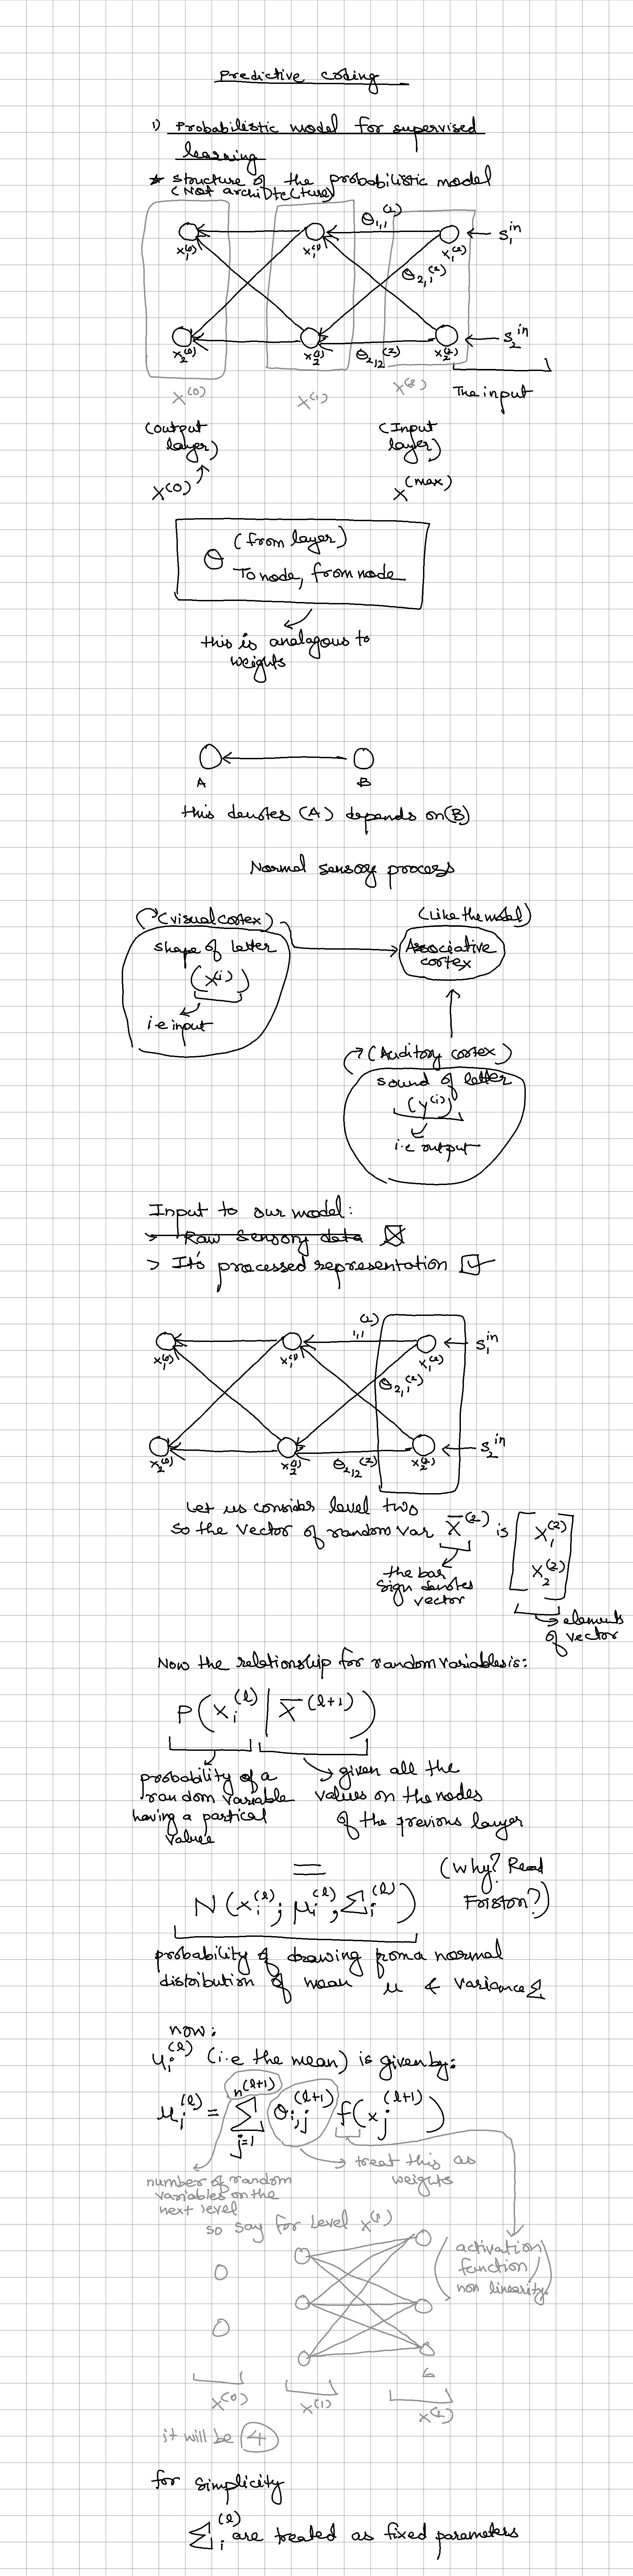 Predictive coding
1) Probabilistic model for supervised
learning
* structure of the probabilistic model
(Not architecture)
θ1,1^(2)
x1^(0) x1^(1) x1^(2) ← S1^in
θ2,1^(2)
x2^(0) x2^(1) θ2,2^(2) x2^(2) ← S2^in
X^(0) X^(1) X^(2) The input
(output
layer)
X^(0)
(Input
layer)
X^(max)
θ (from layer)
To node, from node
this is analogous to
weights
A B
this denotes (A) depends on (B)
Normal sensory process
(visual cortex)
shape of letter
(x^(i))
i.e input
(Like the model)
Associative
cortex
(Auditory cortex)
sound of letter
(y^(i))
i.e output
Input to our model:
> Raw sensory data
> It's processed representation
(2)
1,1
x1^(0) x1^(1) x1^(2) ← S1^in
θ2,1^(2)
x2^(0) x2^(1) θ2,2^(2) x2^(2) ← S2^in
Let us consider level two
so the vector of random var X̄^(2) is [X1^(2)
X2^(2)]
the bar
sign denotes
vector
elements
of vector
Now the relationship for random variables is:
P(x_i^(l) | X̄^(l+1))
probability of a
random variable
having a partical
value
given all the
values on the nodes
of the previous layer
=
N(x_i^(l); μ_i^(l), Σ_i^(l))
(Why? Read
Friston?)
probability of drawing from a normal
distribution of mean μ & variance Σ
now:
μ_i^(l) (i.e the mean) is given by:
μ_i^(l) = Σ_{j=1}^{n^(l+1)} θ_i,j^(l+1) f(x_j^(l+1))
treat this as
weights
number of random
variables on the
next level
so say for level x^(1)
(activation
function/
non linearity)
X^(0) X^(1) X^(2)
it will be 4
for simplicity
Σ_i^(l) are treated as fixed parameters